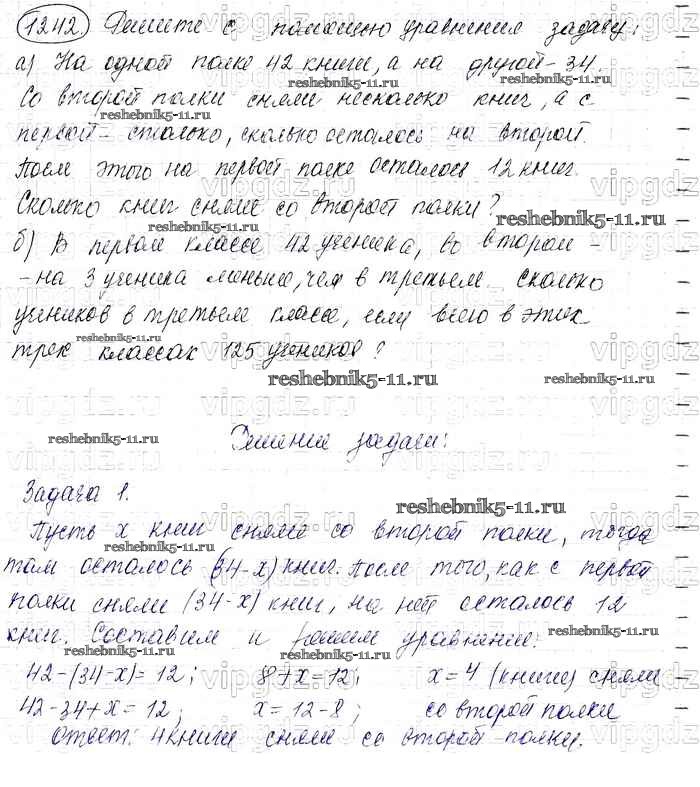 1242. Решите с помощью уравнения задачу:
а) На одной полке 42 книги, а на другой - 34.
Со второй полки сняли несколько книг, а с
первой - столько, сколько осталось на второй.
После этого на первой полке осталось 12 книг.
Сколько книг сняли со второй полки?
б) В первом классе 42 ученика, во втором -
- на 3 ученика меньше, чем в третьем. Сколько
учеников в третьем классе, если всего в этих
трех классах 125 учеников?
Решение задачи:
Задача 1.
Пусть х книг сняли со второй полки, тогда
там осталось (34-х) книг. После того, как с первой
полки сняли (34-х) книг, на ней осталось 12
книг. Составим и решим уравнение:
42-(34-х)=12; 8+х=12; х=4 (книги) сняли
42-34+х=12; х=12-8; со второй полки
Ответ: 4 книги сняли со второй полки.
reshebnik5-11.ru
reshebnik5-11.ru
reshebnik5-11.ru
reshebnik5-11.ru
reshebnik5-11.ru
reshebnik5-11.ru
reshebnik5-11.ru
reshebnik5-11.ru
reshebnik5-11.ru
reshebnik5-11.ru
reshebnik5-11.ru
vipgdz